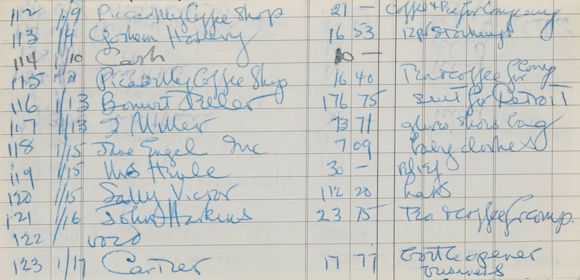 112 1/9 Piccadilly Coffee Shop 21 — Coffee & Tea for Company
113 1/9 Gotham Hosiery 16 53 12 pr Stockings
114 1/10 Cash 10 —
115 1/ Piccadilly Coffee Shop 16 40 Tea & coffee for Comp
116 1/13 Bonwit Teller 176 75 suit for Detroit
117 1/13 I Miller 73 71 gloves shoes bag
118 1/15 Jane Engel Inc 7 09 baby clothes
119 1/15 Mrs 30 — Relief
120 1/15 Sally Victor 112 20 hats
121 1/16 John Harkins 23 75 Tea & coffee for comp.
122 void
123 1/17 Cartier 17 77 bottle opener